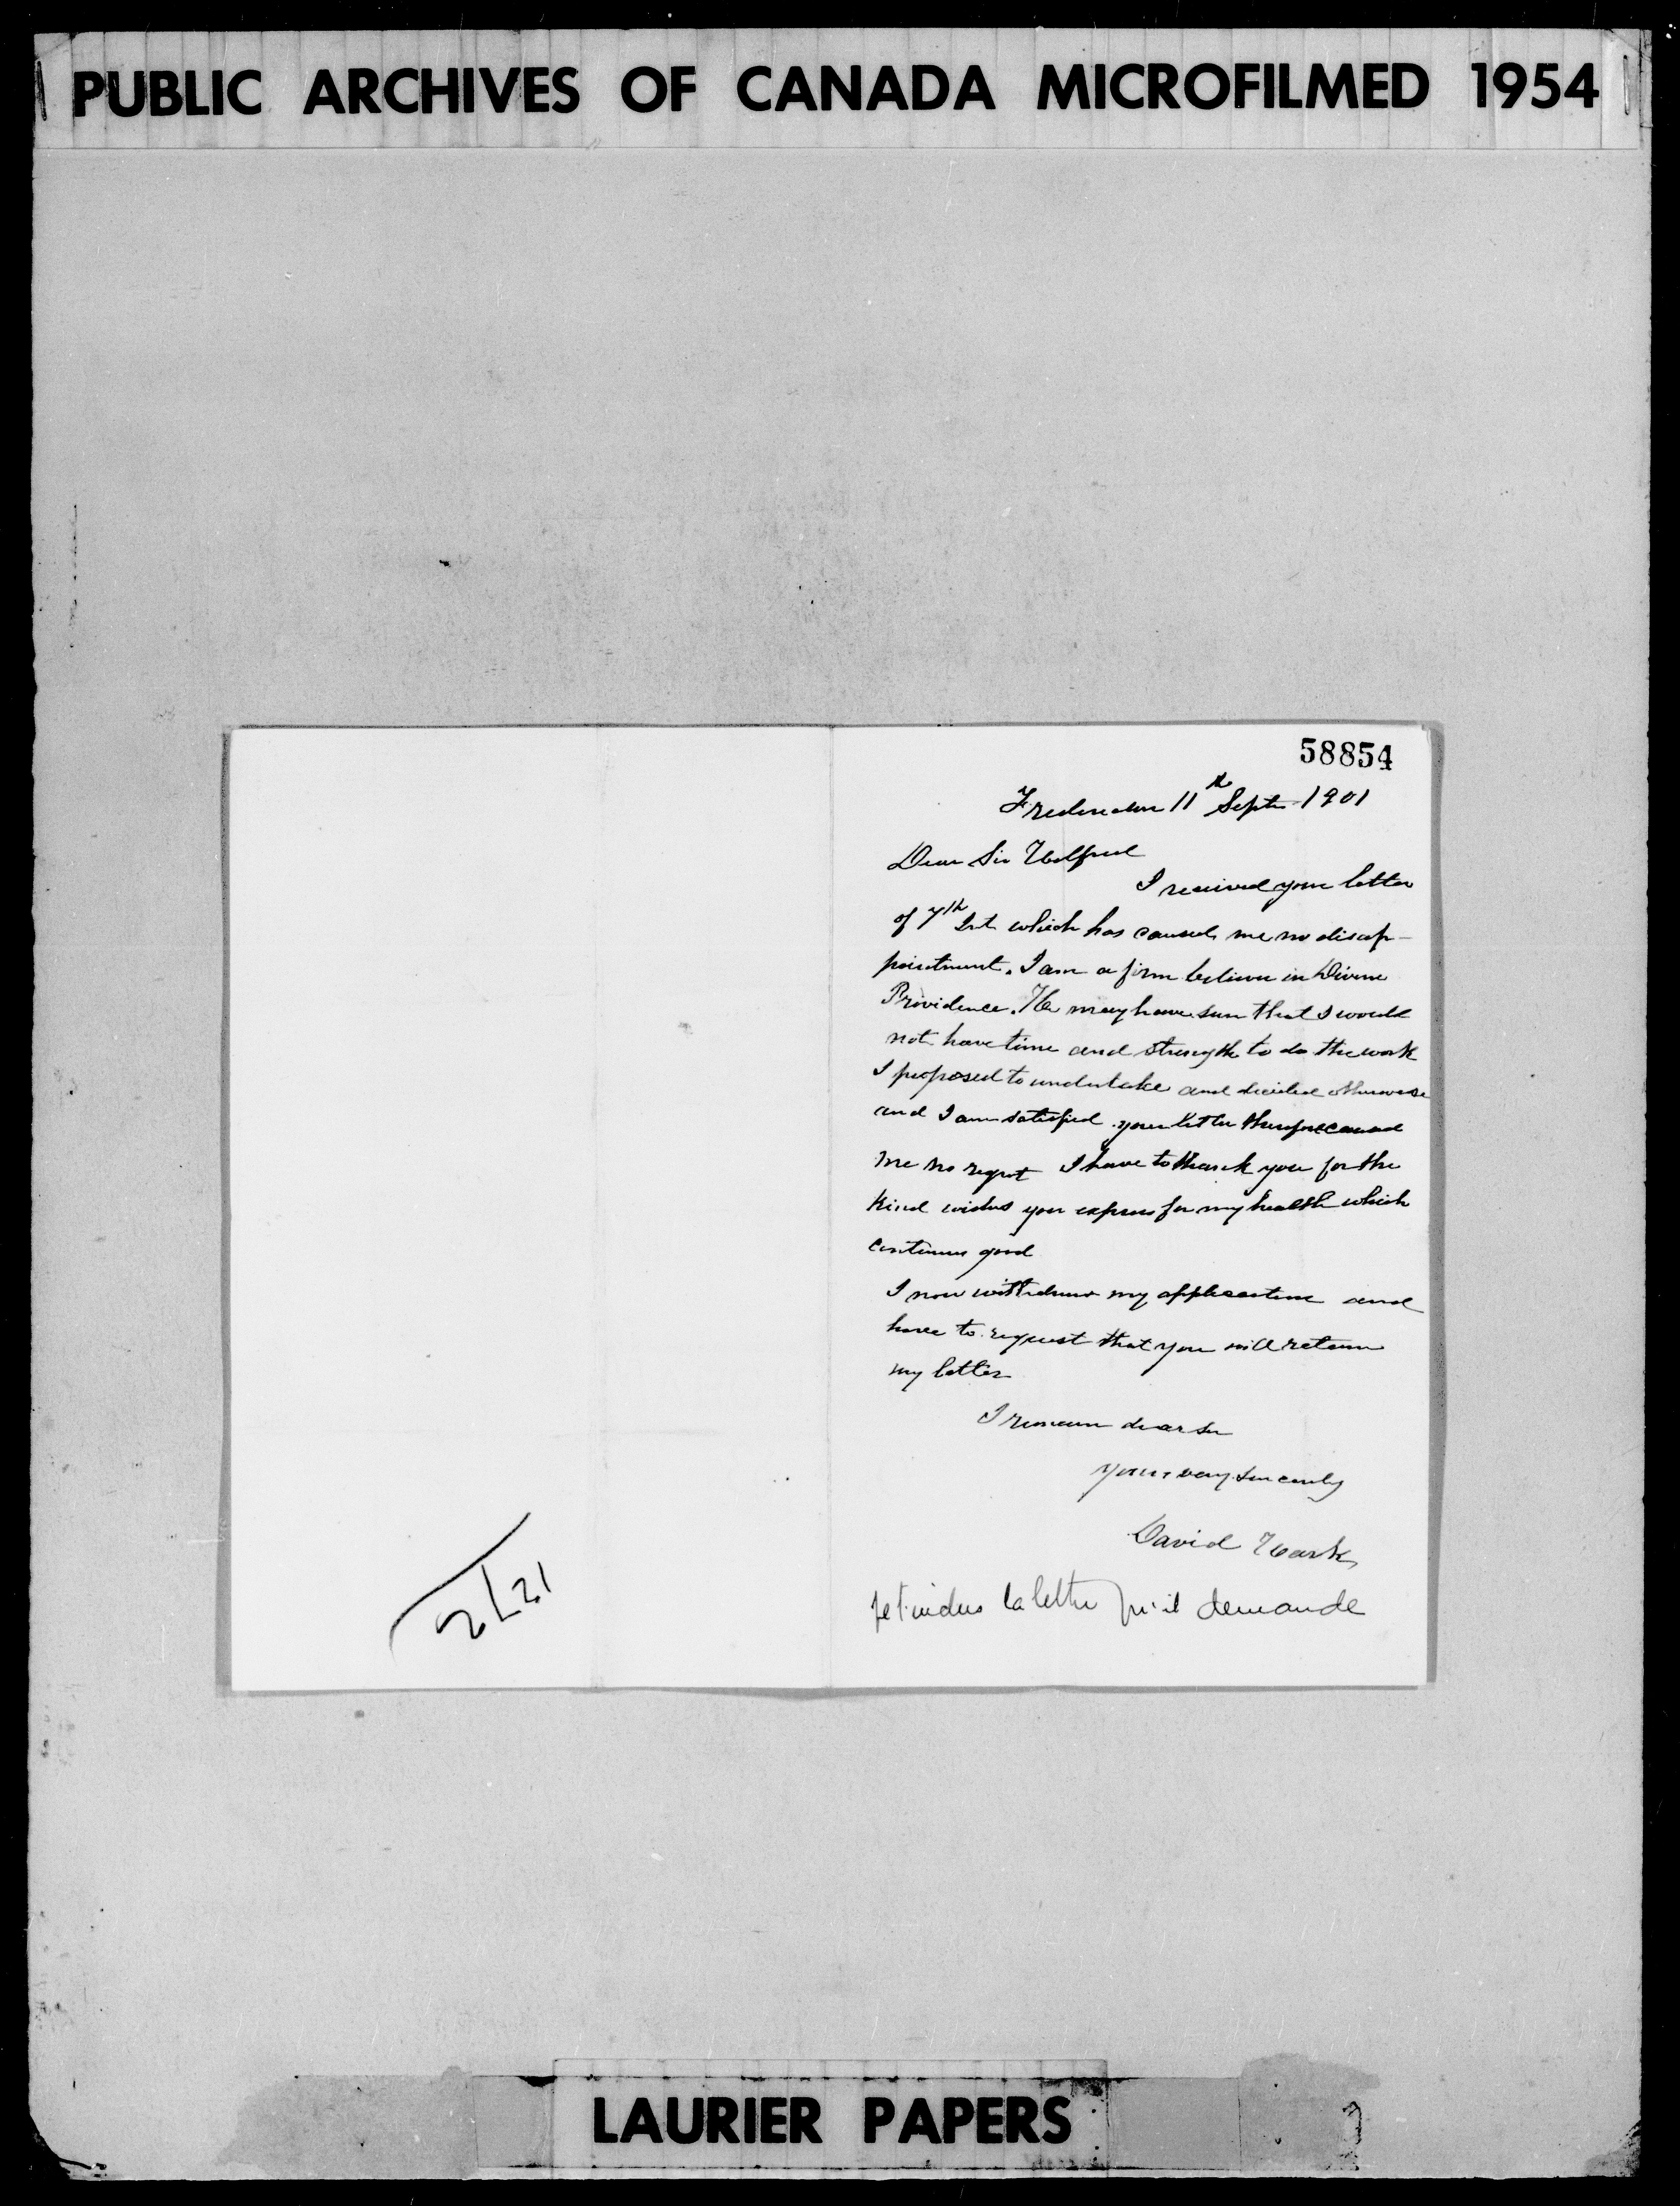 PUBLIC ARCHIVES OF CANADA MICROFILMED 1954
58854
Fredericton 11th Septr 1901
Dear Sir Wilfred
I received your letter
of 7th Inst which has caused me no disap-
pointment. I am a firm believer in Divine
Providence. He may have seen that I would
not have time and strength to do the work
I proposed to undertake and decided otherwise
and I am satisfied your letter therefore caused
me no regret I have to thank you for the
kind wishes you express for my health which
continues good
I now withdraw my application and
have to request that you will return
my letter
I remain dear Sir
yours very sincerely
David Wark
la lettre qu'il demande
LAURIER PAPERS